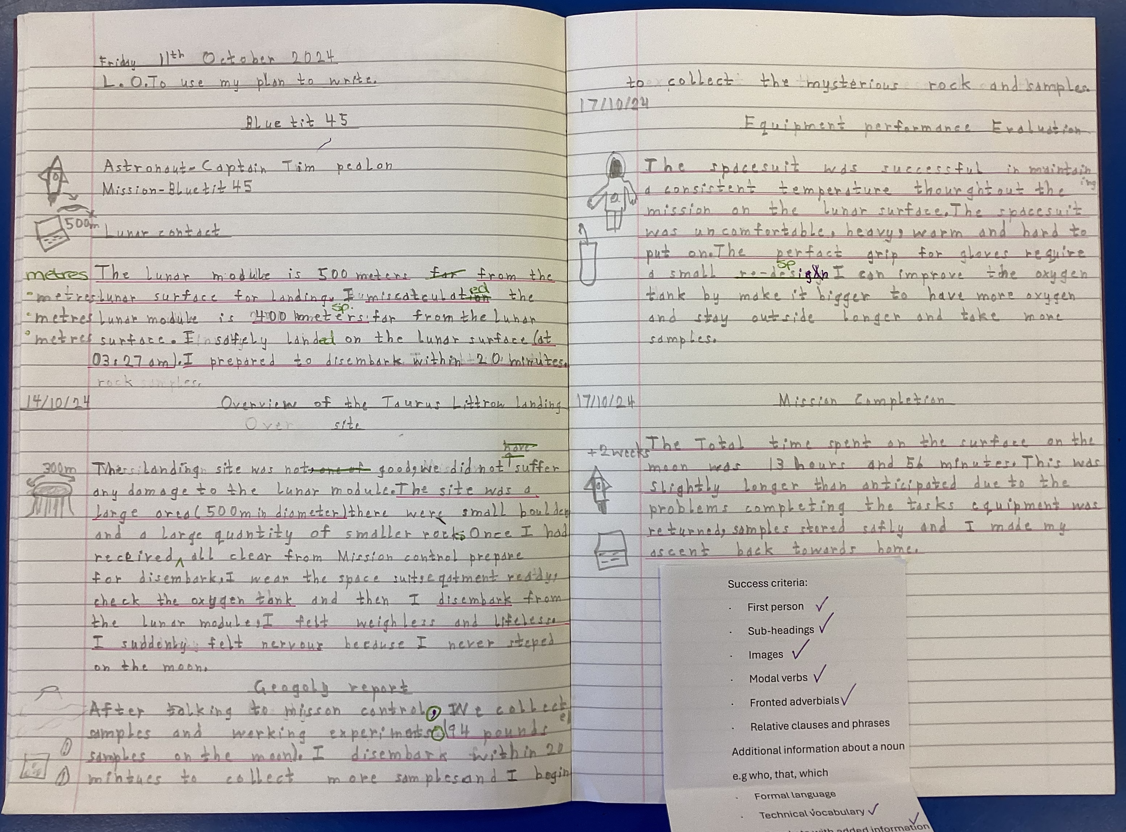 Friday 11th October 2024
L.O.To use my plan to write.
Blue tit 45
Astronaut-Captain Tim pealon
Mission-Bluetit 45
500m
Lunar contact
metres The Lunar module is 500 meters for from the
metres Lunar surface for landing. I miscatculated the
metres Lunar module is 400 meters sp. far from the Lunar
metres surface. I safely landed on the lunar surface (at
03:27 am). I prepared to disembark within 20 minutes.
rock samples.
14/10/24 Overview of the Taurus Littrow landing
Over site
have
300m The landing site was not one of good, we did not suffer
any damage to the Lunar module. The site was a
Large area (500m in diameter) there were small boulder
and a large quantity of smaller rocks. Once I had
received ^ all clear from Mission control prepare
for disembark, I wear the space suit, eqotment ready,
check the oxygen tank and then I disembark from
the Lunar module, I felt weighless and lifeless.
I suddenly felt nervous because I never steped
on the moon.
Geogoly report
After talking to misson control, We collected
samples and working experiments (94 pounds
samples on the moon). I disembark within 20
mintues to collect more samples and I begin
to collect the mysterious rock and samples.
17/10/24
Equipment performance Evaluation
The spacesuit was successful in maintaining
a consistent temperature thourghtout the
mission on the lunar surface. The spacesuit
was uncomfortable, heavy, warm and hard to
put on. The perfact grip for gloves require
sp
a small re-design I can improve the oxygen
tank by make it bigger to have more oxygen
and stay outside longer and take more
samples.
17/10/24 Mission Completion
+2 weeks The Total time spent on the surface on the
moon was 13 hours and 56 minutes. This was
slightly longer than anticipated due to the
problems completing the tasks equipment was
returned, samples stored safly and I made my
ascent back towards home.
Success criteria:
· First person ✓
· Sub-headings ✓
· Images ✓
· Modal verbs ✓
· Fronted adverbials ✓
· Relative clauses and phrases
Additional information about a noun
e.g who, that, which
· Formal language
· Technical vocabulary ✓
with added information